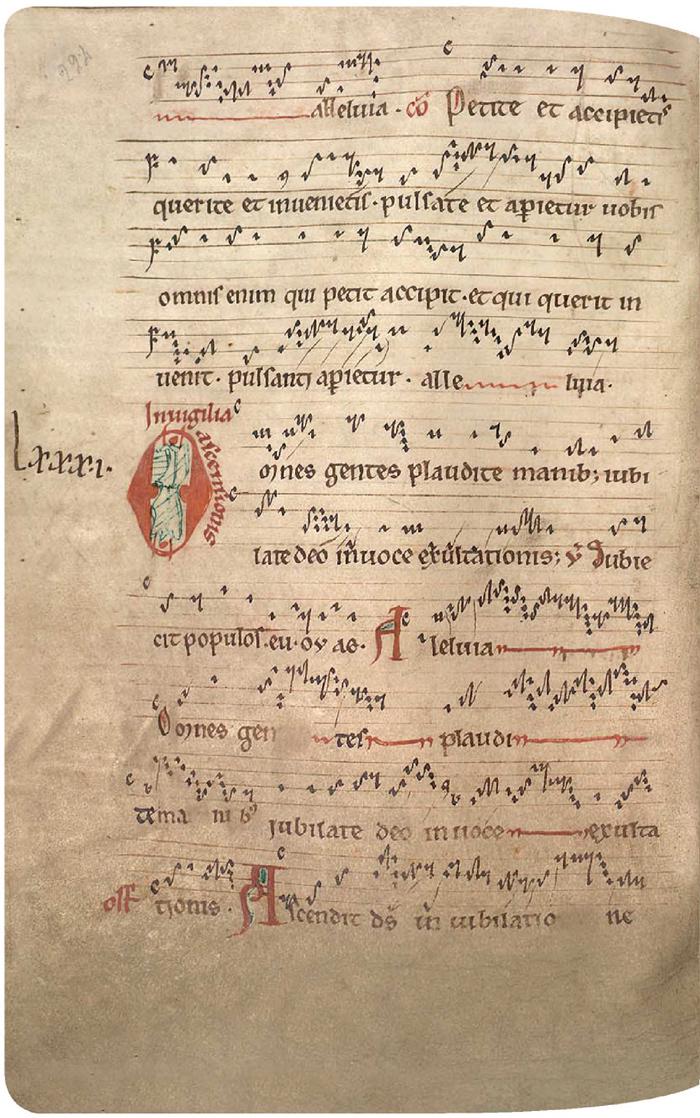 alleluia . co Petite et accipietis
querite et inuenietis . pulsate et apietur uobis
omnis enim qui petit accipit . et qui querit in
uenit . pulsanti apietur . alle luia .
In uigilia ascensionis
Lxxxi .
Omnes gentes plaudite manib; iubi
late deo in uoce exultationis; V Subie
cit populos . eu . o v ae . Alleluia
Omnes gen tes plaudi
te ma nib' Iubilate deo in uoce exulta
off tionis . Ascendit ds in iubilatio ne